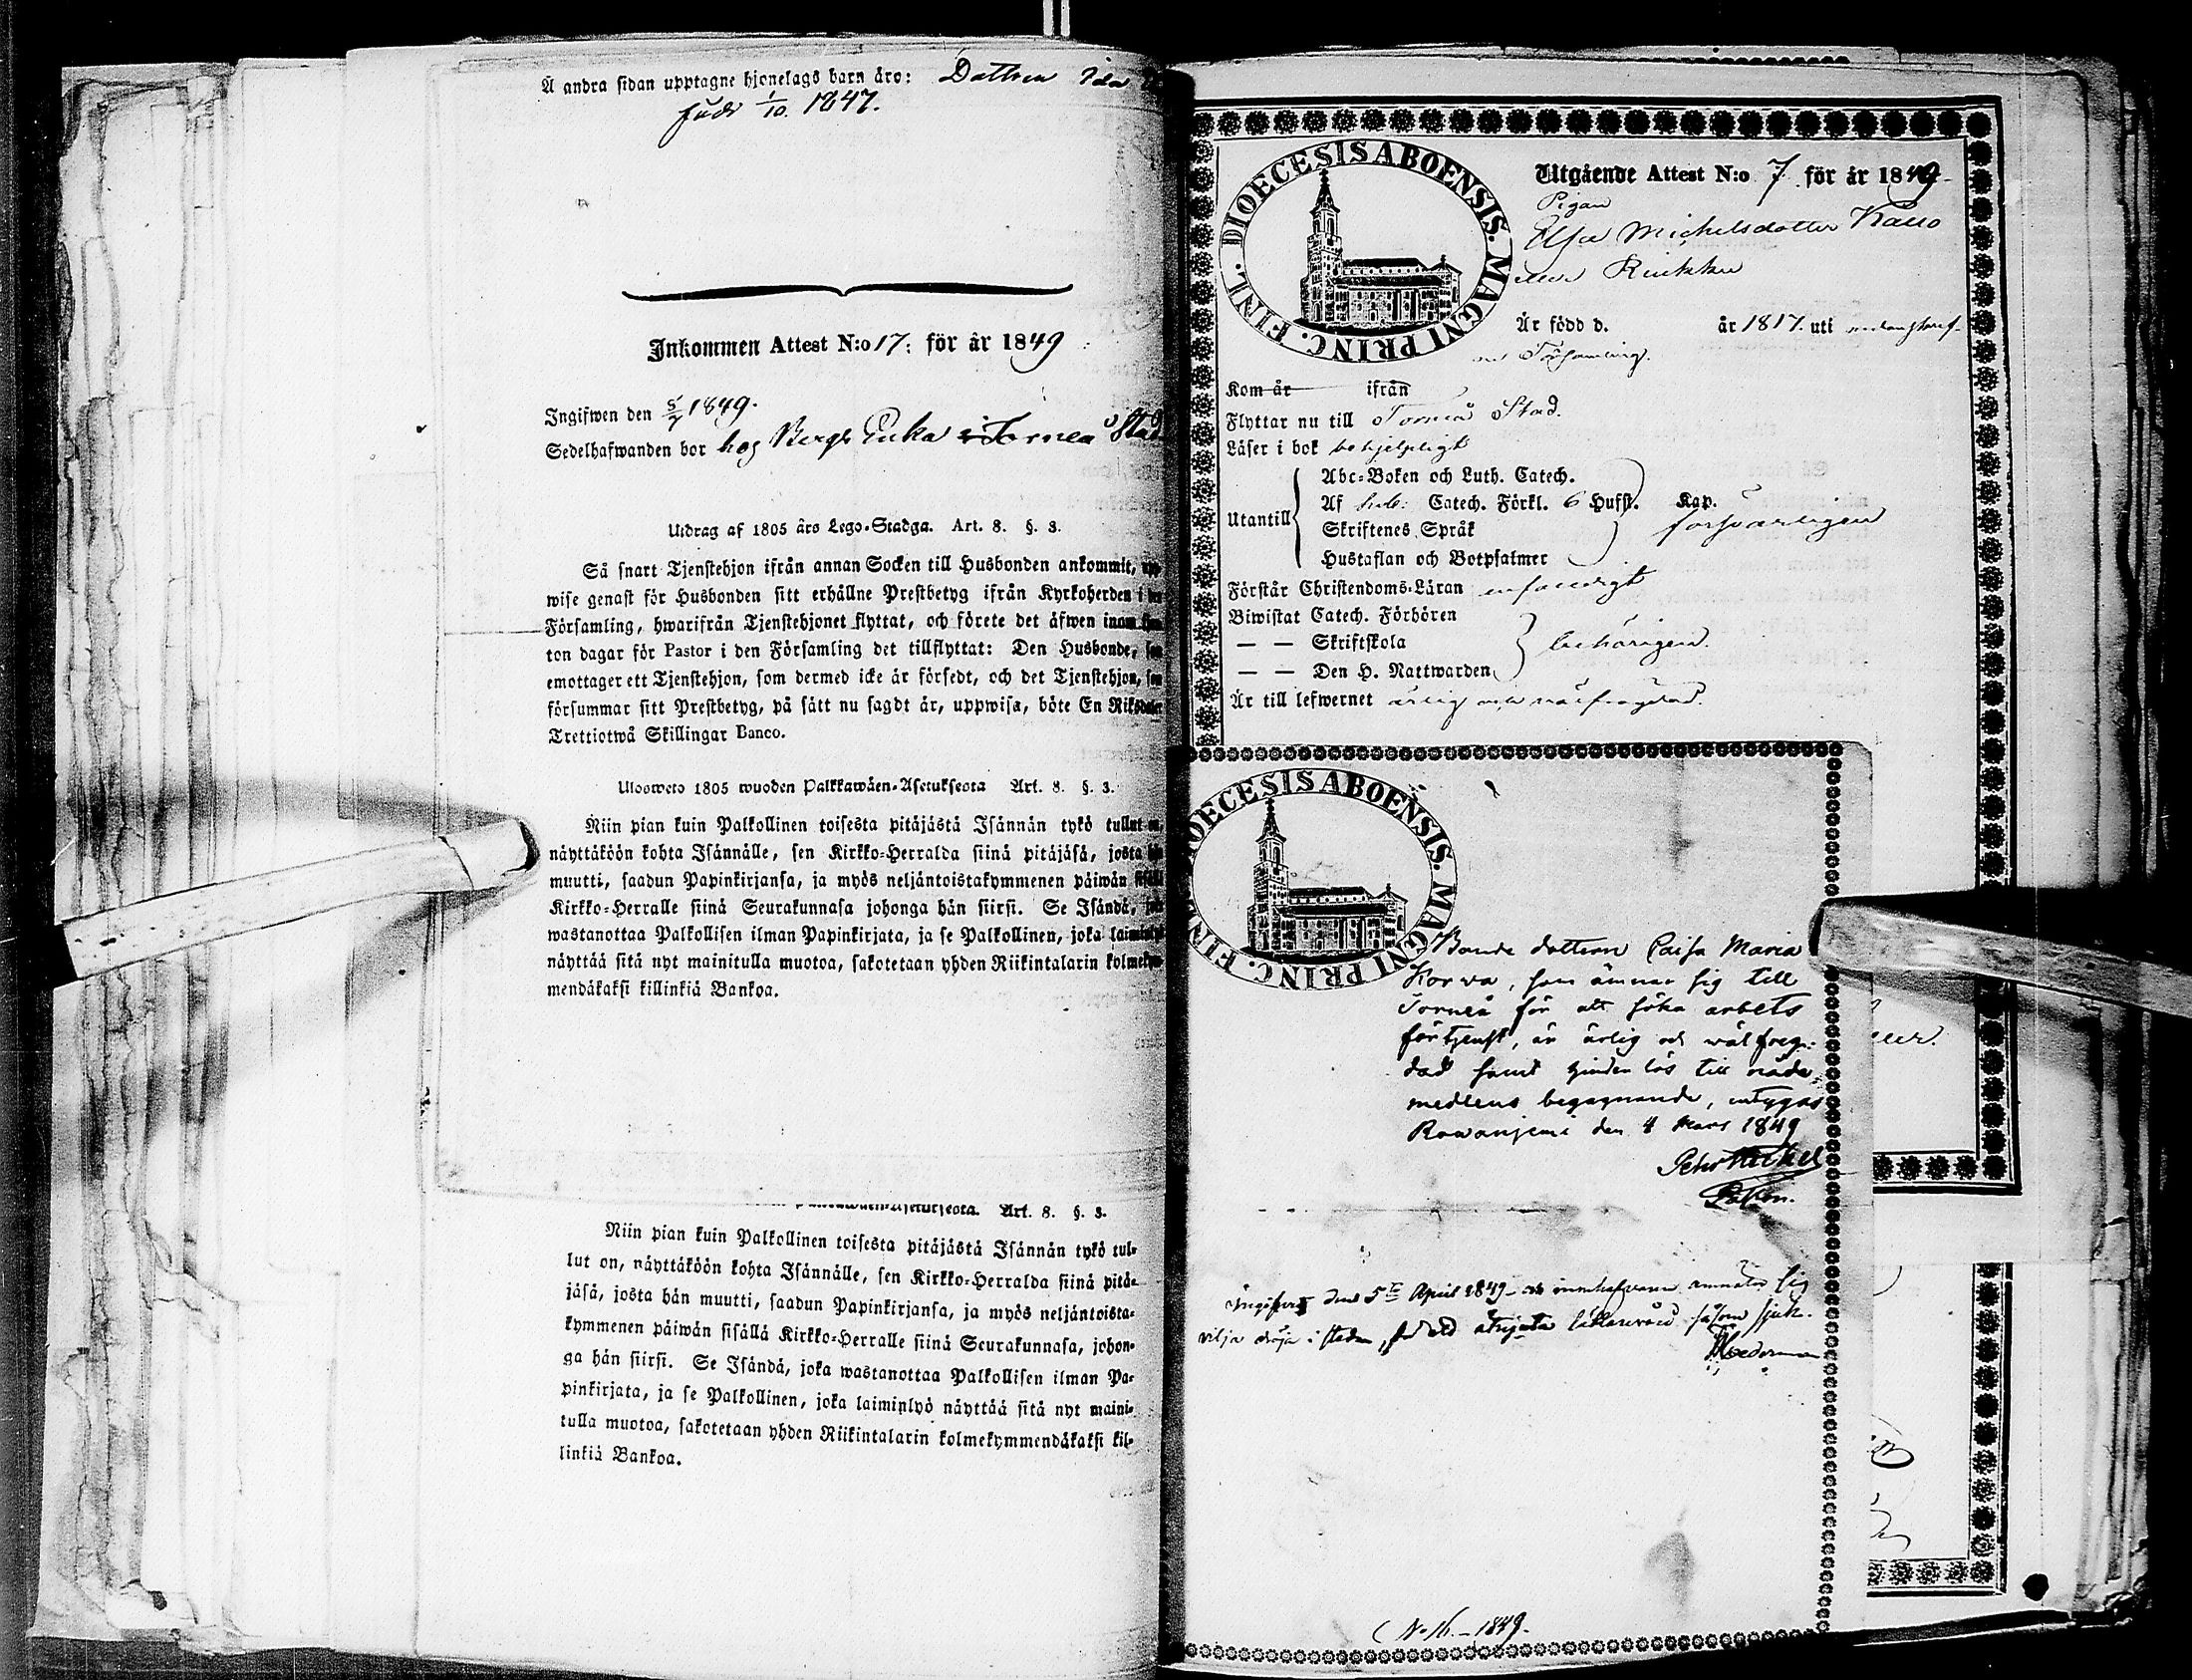 Å andra sidan upptagne hjonelags barn äro: Dottren Ida
född 1/10. 1847.
Inkommen Attest N:o 17: för år 1849
Ingifwen den 5/7 1849.
Sedelhafwanden bor hos Bergs Enka i Torneå Stad
Utdrag af 1805 års Lego-Stadga. Art. 8. §. 3.
Så snart Tjenstehjon ifrån annan Socken till Husbonden ankommit,
wise genast för Husbonden sitt erhållne Prestbetyg ifrån Kyrkoherden i
Församling, hwarifrån Tjenstehjonet flyttat, och förete det äfwen inom
ton dagar för Pastor i den Församling det tillflyttat: Den Husbonde,
emottager ett Tjenstehjon, som dermed icke är försedt, och det Tjenstehjon,
försummar sitt Prestbetyg, på sätt nu sagdt är, uppwisa, böte En Riksdaler
Trettiotwå Skillingar Banco.
Ulosweto 1805 wuoden Palkkawäen-Asetuksesta Art. 8. §. 3.
Niin pian kuin Palkollinen toisesta pitäjästä Isännän tykö tullut
näyttäköön kohta Isännälle, sen Kirkko-Herralda siinä pitäjäsä, josta
muutti, saadun Papinkirjansa, ja myös neljäntoistakymmenen päiwän
Kirkko-Herralle siinä Seurakunnasa johonga hän siirsi. Se Isändä,
wastanottaa Palkollisen ilman Papinkirjata, ja se Palkollinen, joka
näyttää sitä nyt mainitulla muotoa, sakotetaan yhden Riikintalarin
mendäkaksi killinkiä Bankoa.
Art. 8. §. 3.
Niin pian kuin Palkollinen toisesta pitäjästä Isännän tykö tul-
lut on, näyttäköön kohta Isännälle, sen Kirkko-Herralda siinä pitä-
jäsä, josta hän muutti, saadun Papinkirjansa, ja myös neljäntoista-
kymmenen päiwän sisällä Kirkko-Herralle siinä Seurakunnasa, johon-
ga hän siirsi. Se Isändä, joka wastanottaa Palkollisen ilman Pa-
pinkirjata, ja se Palkollinen, joka laiminlyö näyttää sitä nyt maini-
tulla muotoa, sakotetaan yhden Riikintalarin kolmekymmendäkaksi kil-
linkiä Bankoa.
DIOECESIS ABOENSIS. MAGNI PRINC. FINL.
Utgående Attest N:o 7. för år 1849
Pigan
Elsa Michelsdotter
Är född d. år 1817. uti
Församling.
Kom år ifrån
Flyttar nu till Torneå Stad.
Läser i bok behjelpligt
Utantill
Abc-Boken och Luth. Catech.
Af Catech. Förkl. 6 Hufst. Kap.
Skriftenes Språk
Hustaflan och Botpsalmer
försvarligen
Förstår Christendoms-Läran
Biwistat Catech. Förhören
— — Skriftskola
— — Den H. Nattwarden
behörigen.
Är till lefwernet ärlig och välfrägdad.
DIOECESIS ABOENSIS. MAGNI PRINC. FIN
Bonde dottren Caisa Maria
Korva, som ämnar sig till
Torneå för att söka arbets
förtjenst, är ärlig och wälfreg-
dad samt hinderlös till nåde
medlens begagnande, intygas
Rowaniemi den 4 Mars 1849
Ingifvet den 5te April 1849
vilja dröja i staden såsom sjuk.
(No 16. – 1849.